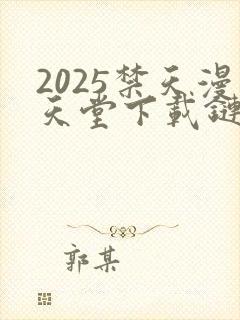 2025禁天漫
天堂下載鏈
郭某